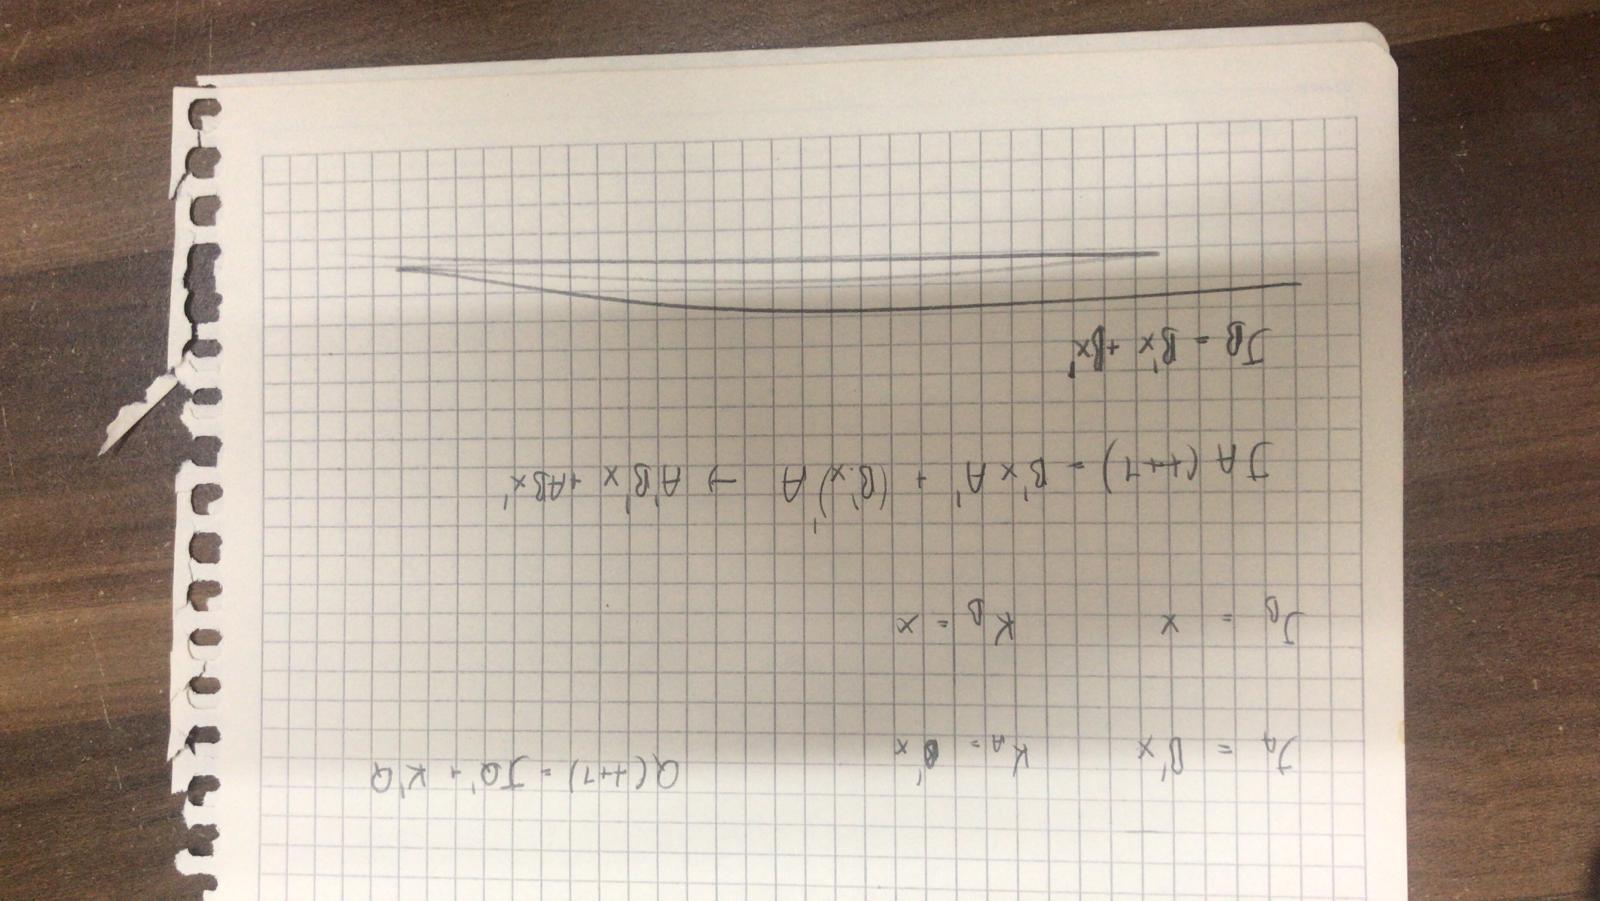 J_A = B'x K_A = B'x Q(t+1) = JQ' + K'Q
J_B = x K_B = x
JA(t+1) = B'xA' + (B'.x)'A → A'B'x + ABx'
J_B = B'x + Bx'